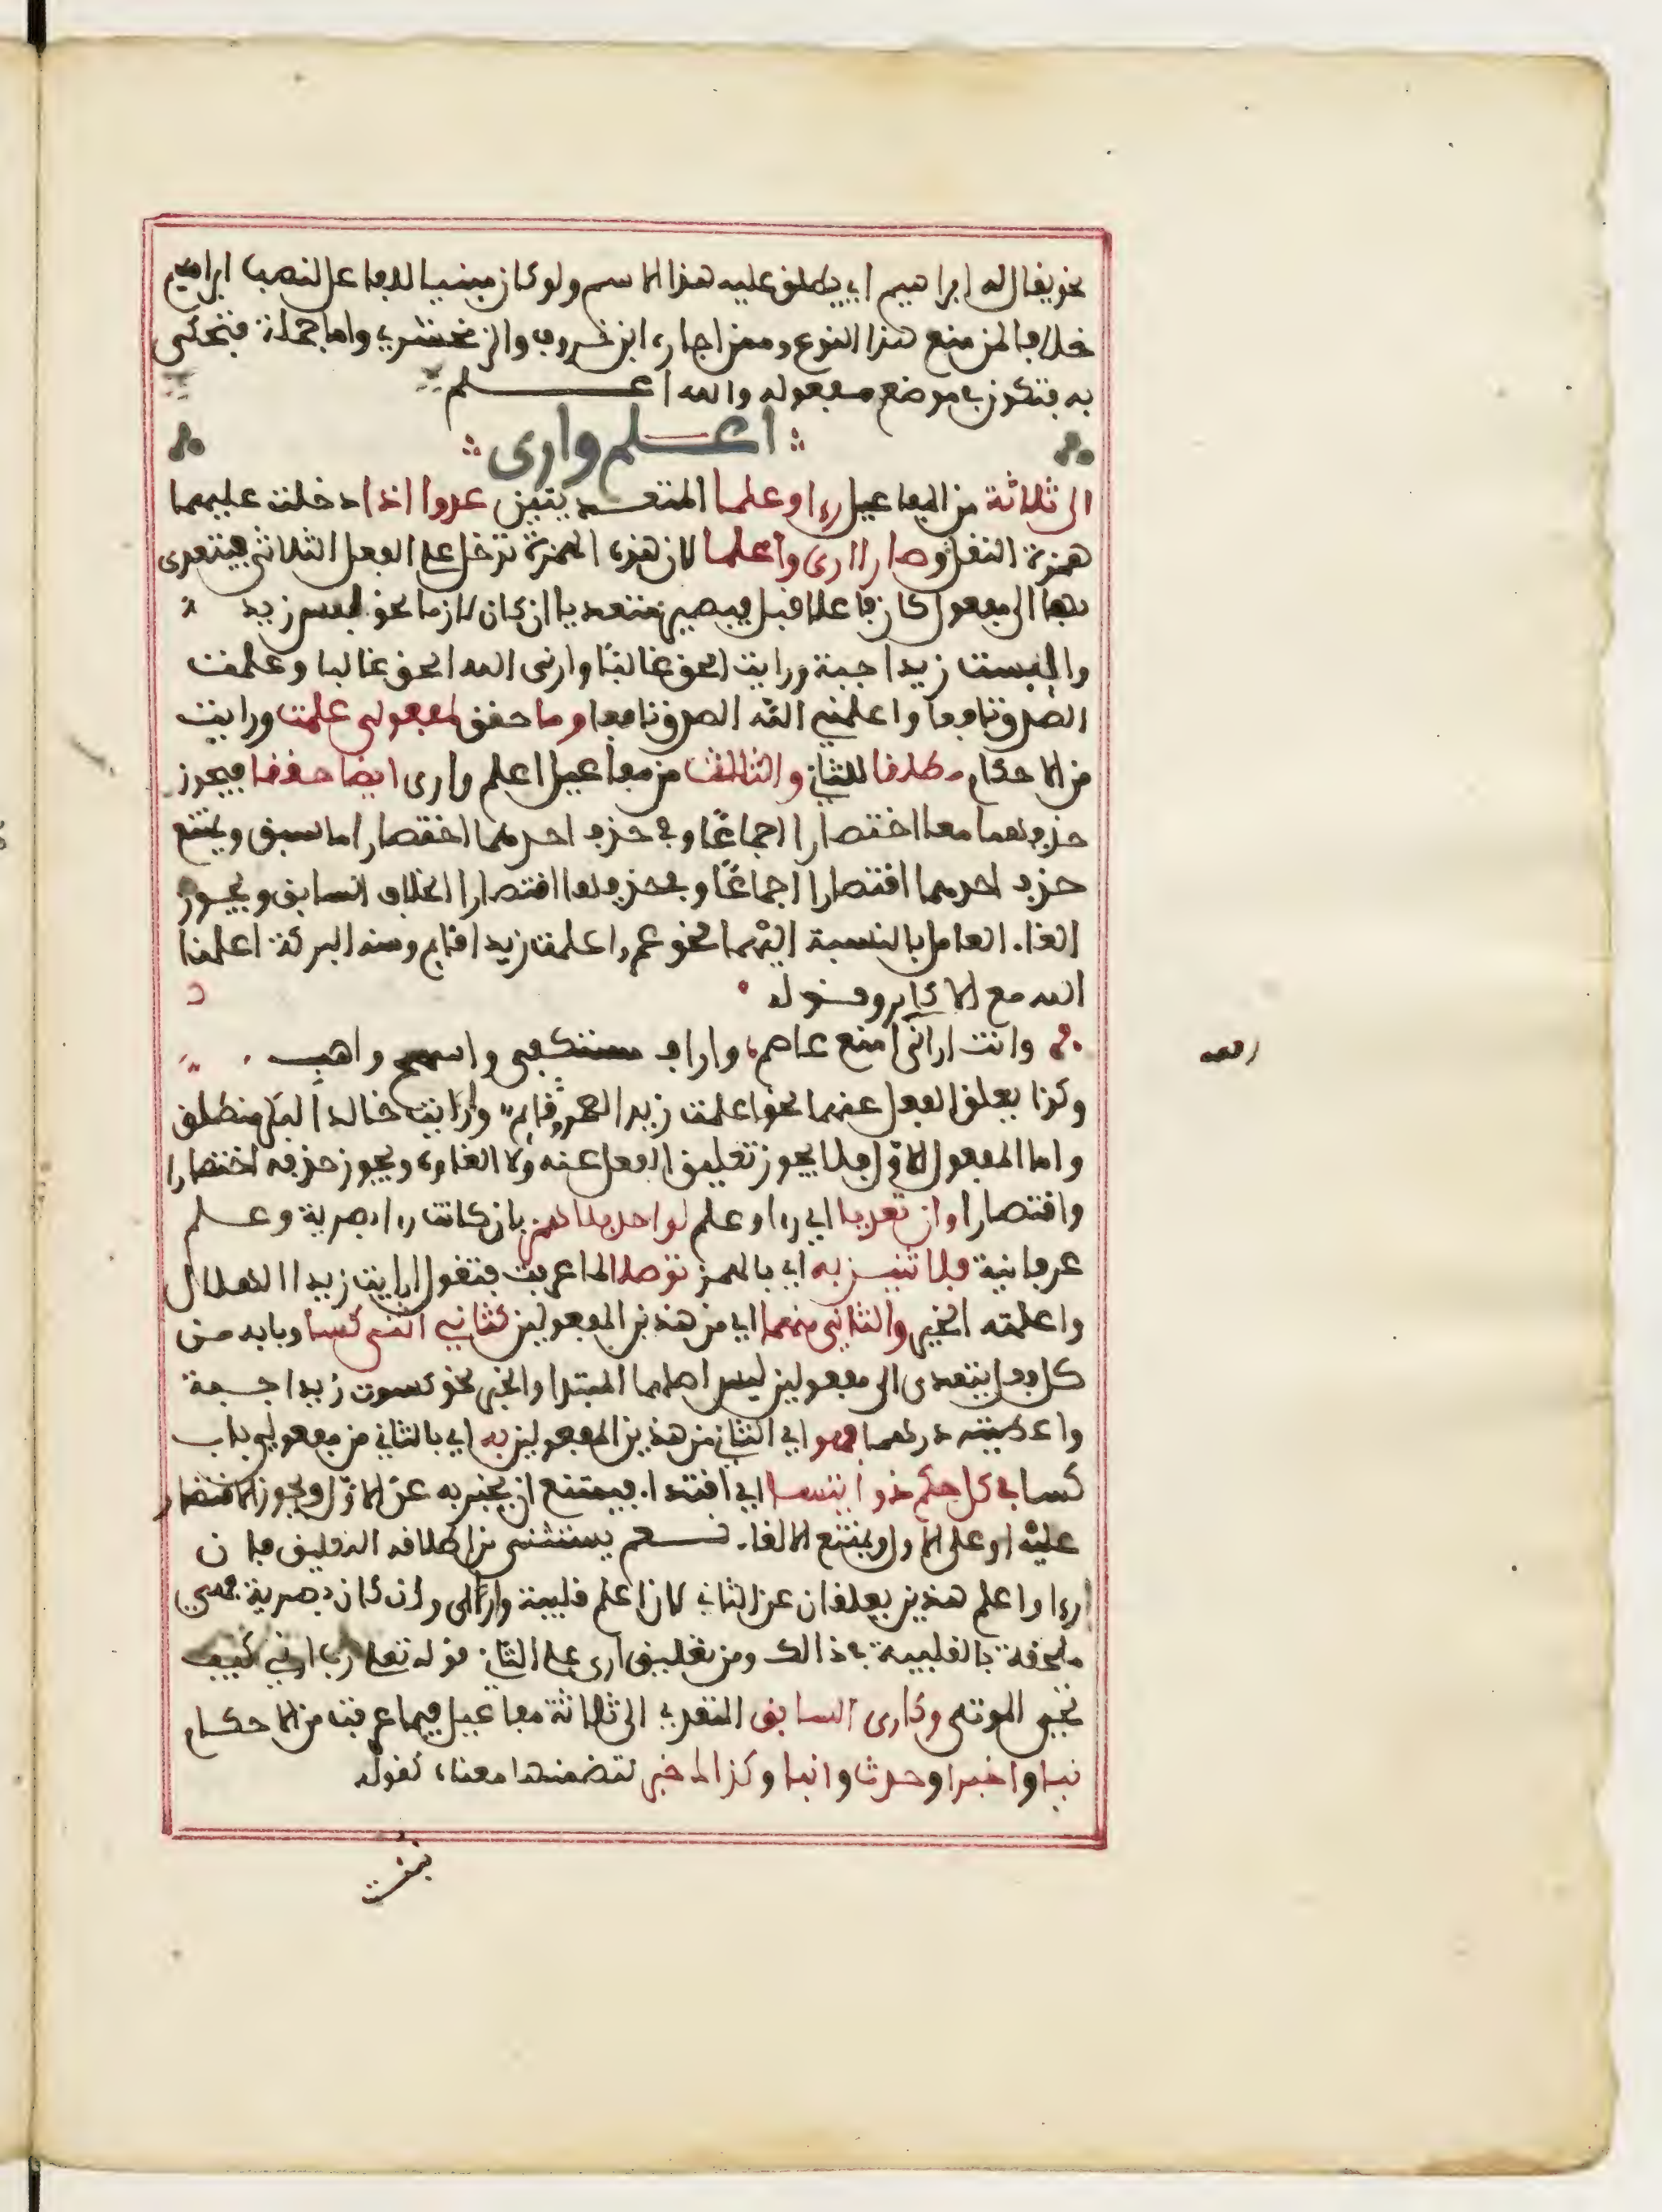 نحو يقال له ابراهيم اي يطلق عليه هذا الاسم ولو كان مبنيا للفاعل لنصب ابراهيم
خلافا لمن منع هذا النوع وممن اجازه ابن خروف والزمخشري واما جملة فتحكى
به فتكون في موضع مفعوله والله اعلم
اعلم وارى
الى ثلاثة من المفاعيل راى وعلما المتعديتين عدوا اذا دخلت عليهما
همزة النقل وصارا ارى واعلما لان هذه الهمزة تدخل على الفعل الثلاثي فيتعدى
بها الى مفعول كان فاعلا قبل فيصير متعديا ان كان لازما نحو لبس زيد
والبست زيدا جبة ورايت الحق غالبا وارنى الله الحق غالبا وعلمت
الصدق نافعا واعلمني الله الصدق نافعا وما حقق لمفعولي علمت ورايت
من الاحكام مطلقا للثان والثالث من مفاعيل اعلم وارى ايضا حققا فيجوز
حذفهما معا اختصارا اجماعا وفي حذف احدهما اختصارا ما سبق ويمتنع
حذف احدهما اقتصارا اجماعا وفي حذفهما اقتصارا الخلاف السابق ويجوز
الغاء العامل بالنسبة اليهما نحو عمرا علمت زيدا قايم ومنه البركة اعلمنا
الله مع الاكابر وقوله
وانت ارانى امنع عاصم، واراف مستكفى واسمح واهب
وكذا يعلق الفعل عنهما نحو اعلمت زيدا لعمرو قايم وارايت خالدا لبكر منطلق
واما المفعول الاول فلا يجوز تعليق الفعل عنه ولا الغاوه ويجوز حذفه اختصارا
واقتصارا وان تعديا اي راى وعلم لواحد بلا همز بان كانت راى بصرية وعلم
عرفانية فلاثنين به اي بالهمز توصلا لما عرفت فتقول ارايت زيدا الهلال
واعلمته الخبر والثانى منهما اي من هذين المفعولين كثاني اثنى كسا وبابه من
كل فعل يتعدى الى مفعولين ليس اصلهما المبتدا والخبر نحو كسوت زيدا جبة
واعطيته درهما فهو اي الثاني من هذين المفعولين به اي بالثاني من مفعولي باب
كسا في كل حكم ذو ايتسا اي اقتدا. فيمتنع ان يخبر به عن الاول ويجوز الاقتصار
عليه او على الاول ويمتنع الالغا. نعم يستثنى من اطلاقه التعليق فان
ارى واعلم هذين يعلقان عن الثاني لان اعلم قلبية وارى وان كان بصرية فهي
ملحقة بالقلبية في ذالك ومن تعليق ارى على الثان قوله تعلى رب ارني كيف
تحيي الموتى وكارى السابق المتعدي الى ثلاثة مفاعيل فيما عرفت من الاحكام
نبا واخبرا وحدث وانبا وكذا لك خبر لتضمنها معناه كقوله